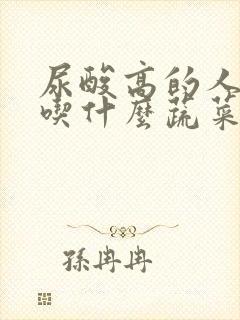 尿酸高的人
喫什麼蔬菜
孫冉冉